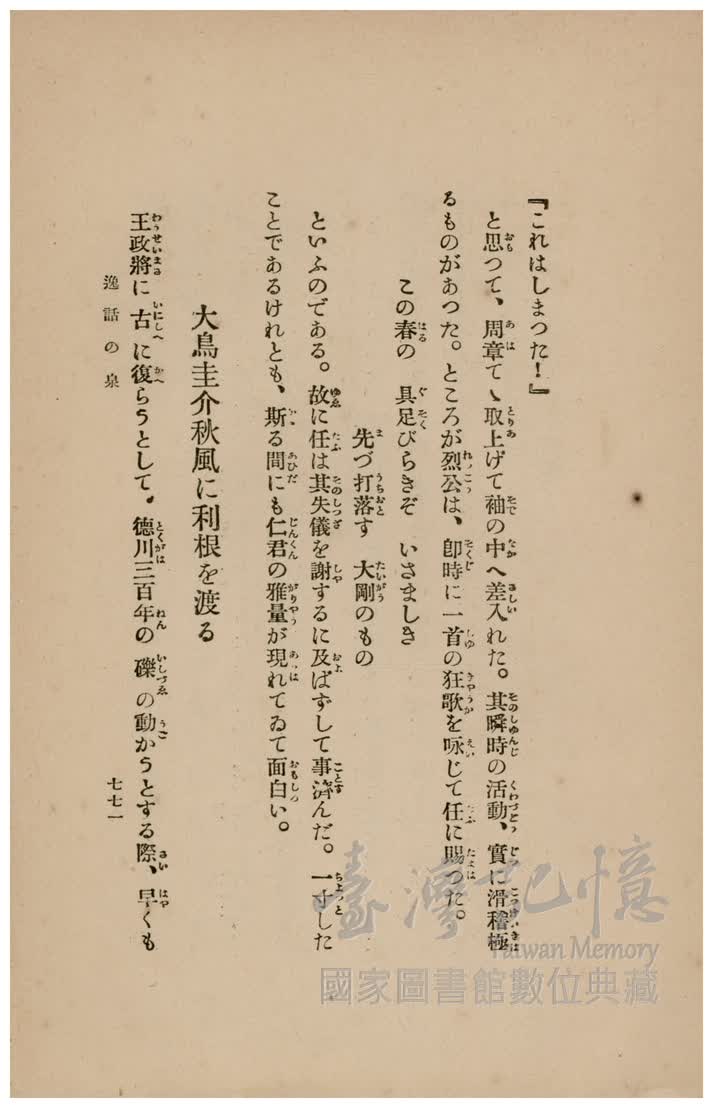 『これはしまつた！』
と思つて、周章てゝ取上げて袖の中へ差入れた。其瞬時の活動、實に滑稽極
るものがあつた。ところが烈公は、卽時に一首の狂歌を咏じて任に賜つた。
この春の　具足びらきぞ　いさましき
先づ打落す　大剛のもの
といふのである。故に任は其失儀を謝するに及ばずして事濟んだ。一寸した
ことであるけれとも、斯る間にも仁君の雅量が現れてゐて面白い。
大鳥圭介秋風に利根を渡る
王政將に古に復らうとして、德川三百年の礎の動かうとする際、早くも
逸話の泉
七七一
臺灣記憶
Taiwan Memory
國家圖書館數位典藏